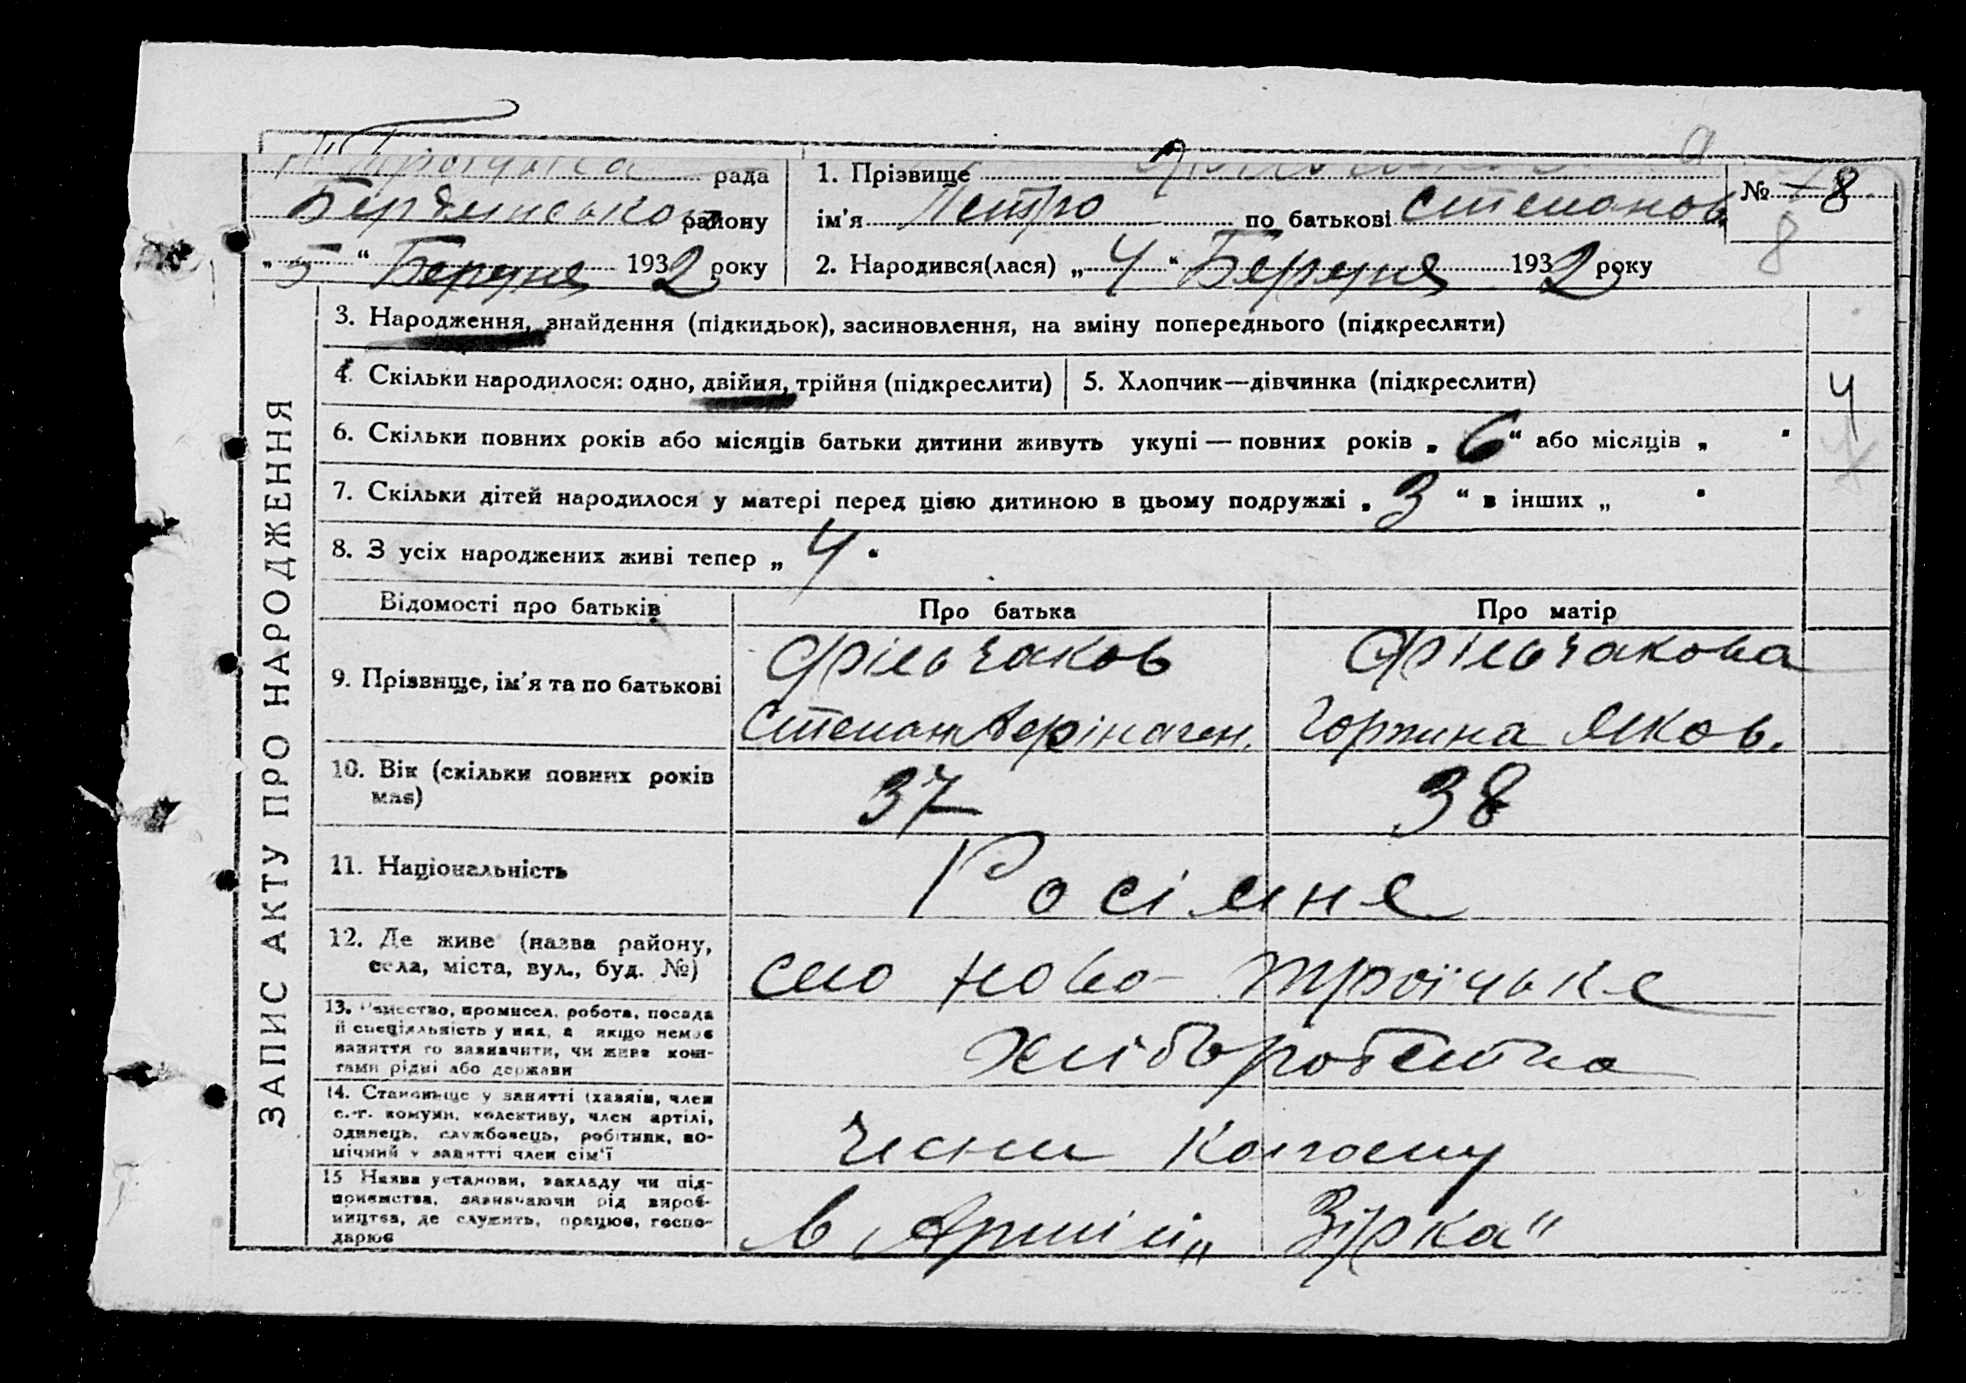 рада
Бердянського району
„ 5 “ Березня 1932 року
1. Прізвище
ім’я Петро по батькові Степанов.
2. Народився(лася) „ 4 “ Березня 1932 року
№ 8
8
ЗАПИС АКТУ ПРО НАРОДЖЕННЯ
3. Народження, знайдення (підкидьок), засиновлення, на зміну попереднього (підкреслити)
4. Скільки народилося: одно, двійня, трійня (підкреслити)
5. Хлопчик—дівчинка (підкреслити)
4
6. Скільки повних років або місяців батьки дитини живуть укупі — повних років „ 6 “ або місяців „ “
7. Скільки дітей народилося у матері перед цією дитиною в цьому подружжі „ 3 “ в інших „ “
8. З усіх народжених живі тепер „ 4 “
Відомості про батьків
Про батька
Про матір
9. Прізвище, ім’я та по батькові
Фільчаков
Степан
Фільчакова
Яков.
10. Вік (скільки повних років
має)
37
38
11. Національність
Росіяне
12. Де живе (назва району,
села, міста, вул., буд. №)
село Ново-Троїцьке
13. Ремество, промисел, робота, посада
й спеціяльність у них, а якщо немає
заняття то зазначити, чи живе кош-
тами рідні або держави
14. Становище у занятті (хазяїн, член
с.-г. комуни, колективу, член артілі,
одинець, службовець, робітник, по-
мічний у занятті член сім’ї
члени колгоспу
15 Назва установи, закладу чи під-
приємства, зазначаючи рід вироб-
ництва, де служить, працює, госпо-
дарює
в Артілі „Зірка“